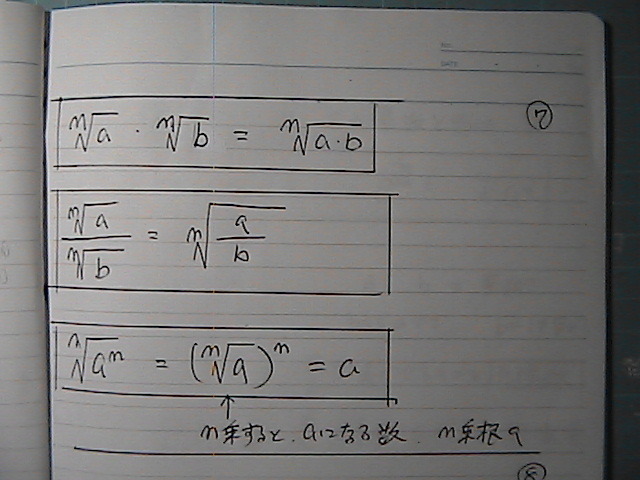 ⑦
ⁿ√a · ⁿ√b = ⁿ√a·b
ⁿ√a / ⁿ√b = ⁿ√(a/b)
ⁿ√aⁿ = (ⁿ√a)ⁿ = a
↑
n乗すると、aになる数、n乗根a
⑧